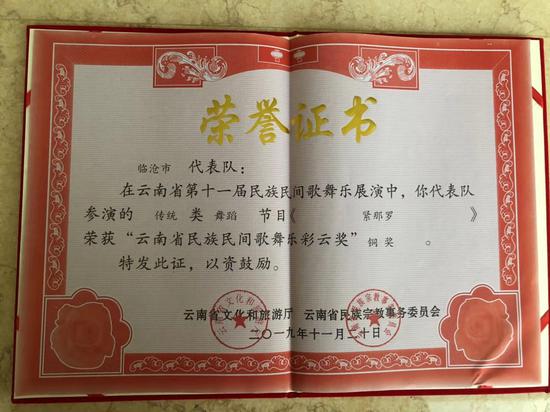 荣誉证书
临沧市 代表队：
在云南省第十一届民族民间歌舞乐展演中，你代表队
参演的 传统 类 舞蹈 节目《 紧那罗 》
荣获“云南省民族民间歌舞乐彩云奖” 铜奖 。
特发此证，以资鼓励。
云南省文化和旅游厅 云南省民族宗教事务委员会
二〇一九年十一月二十日